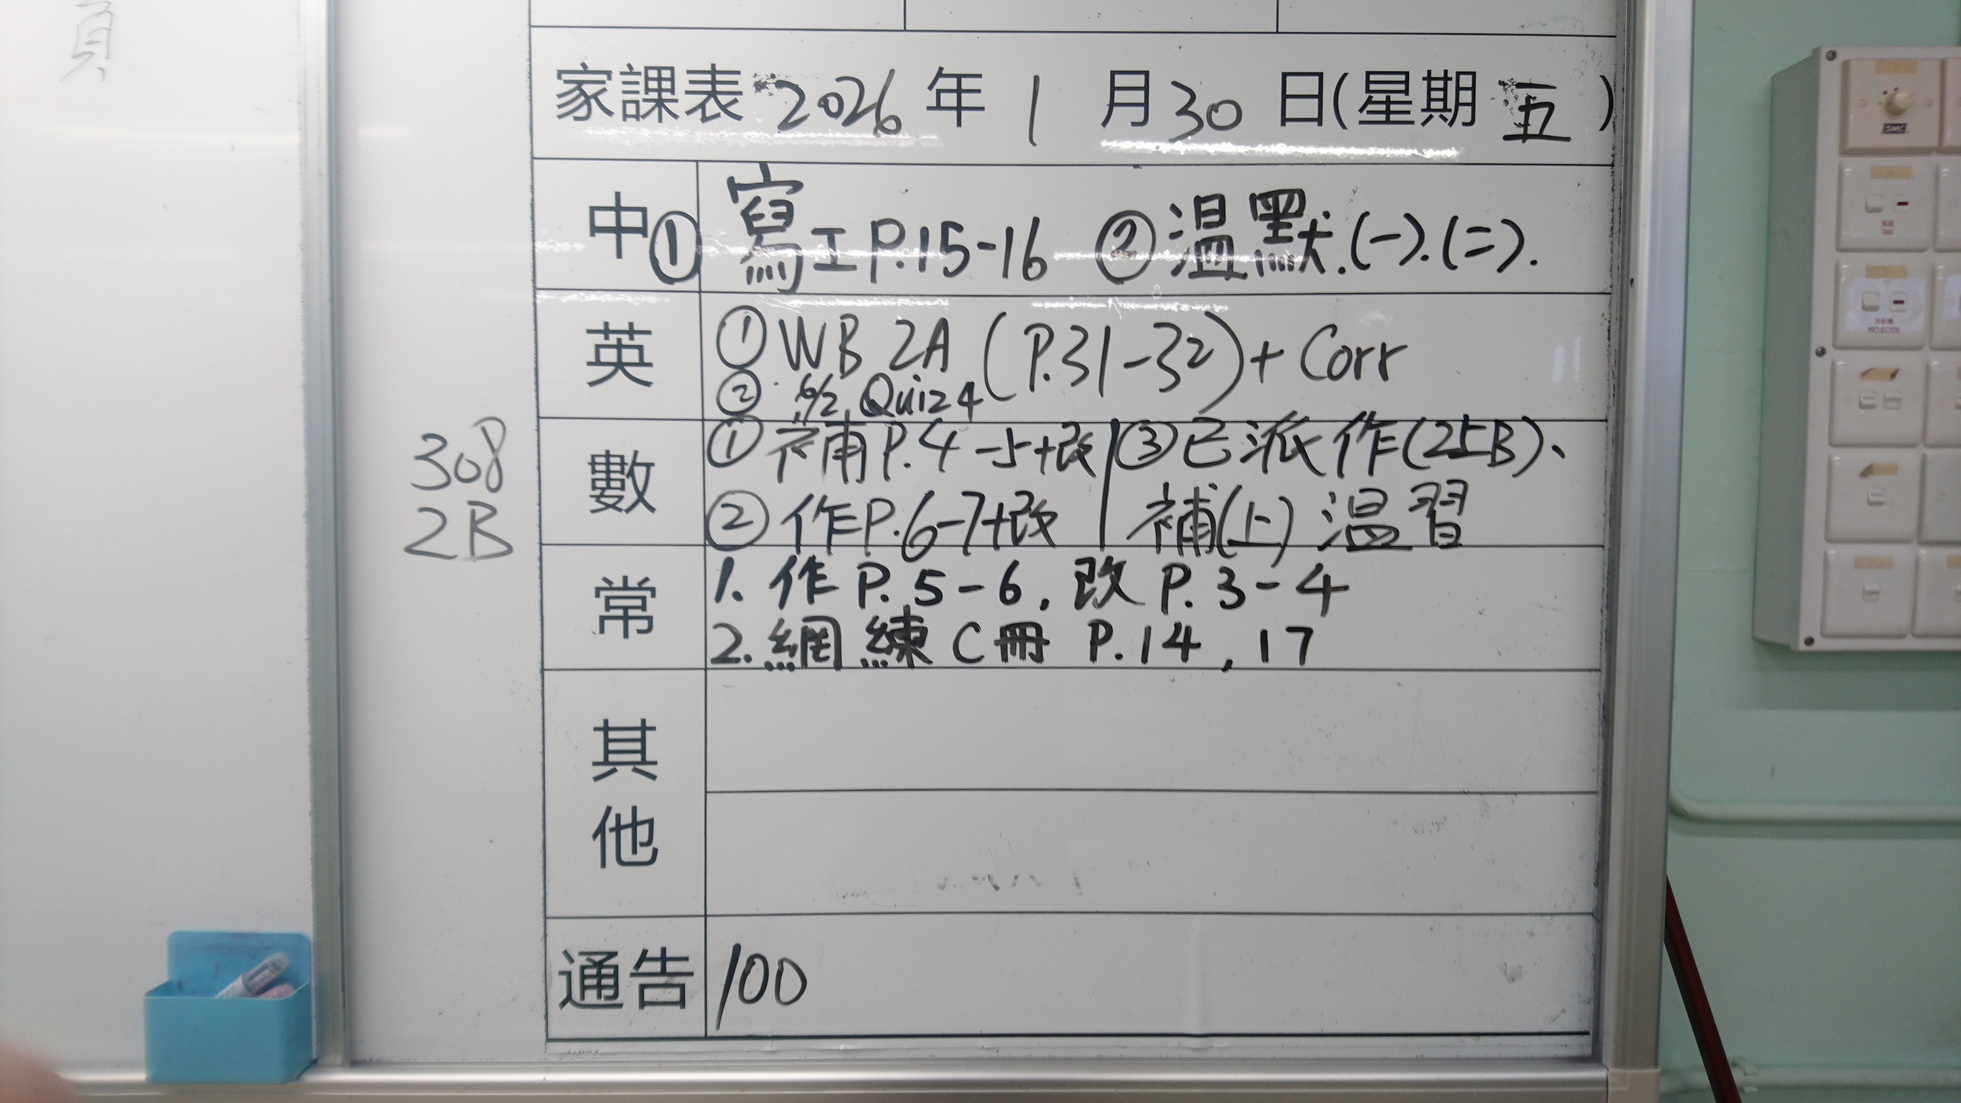 頁
家課表 2026 年 1 月 30 日(星期 五 )
中 ① 寫工P.15-16 ② 溫默.(一).(二).
英 ① WB 2A (P.31-32) + Corr
② 6/2, Quiz 4
數 ① 補P.4-5+改 ③ 已派作(25B)、
② 作P.6-7+改 補(上) 溫習
常 1. 作 P. 5-6, 改 P. 3-4
2. 網練 C冊 P.14, 17
其他
通告 100
308
2B
PROJECTOR